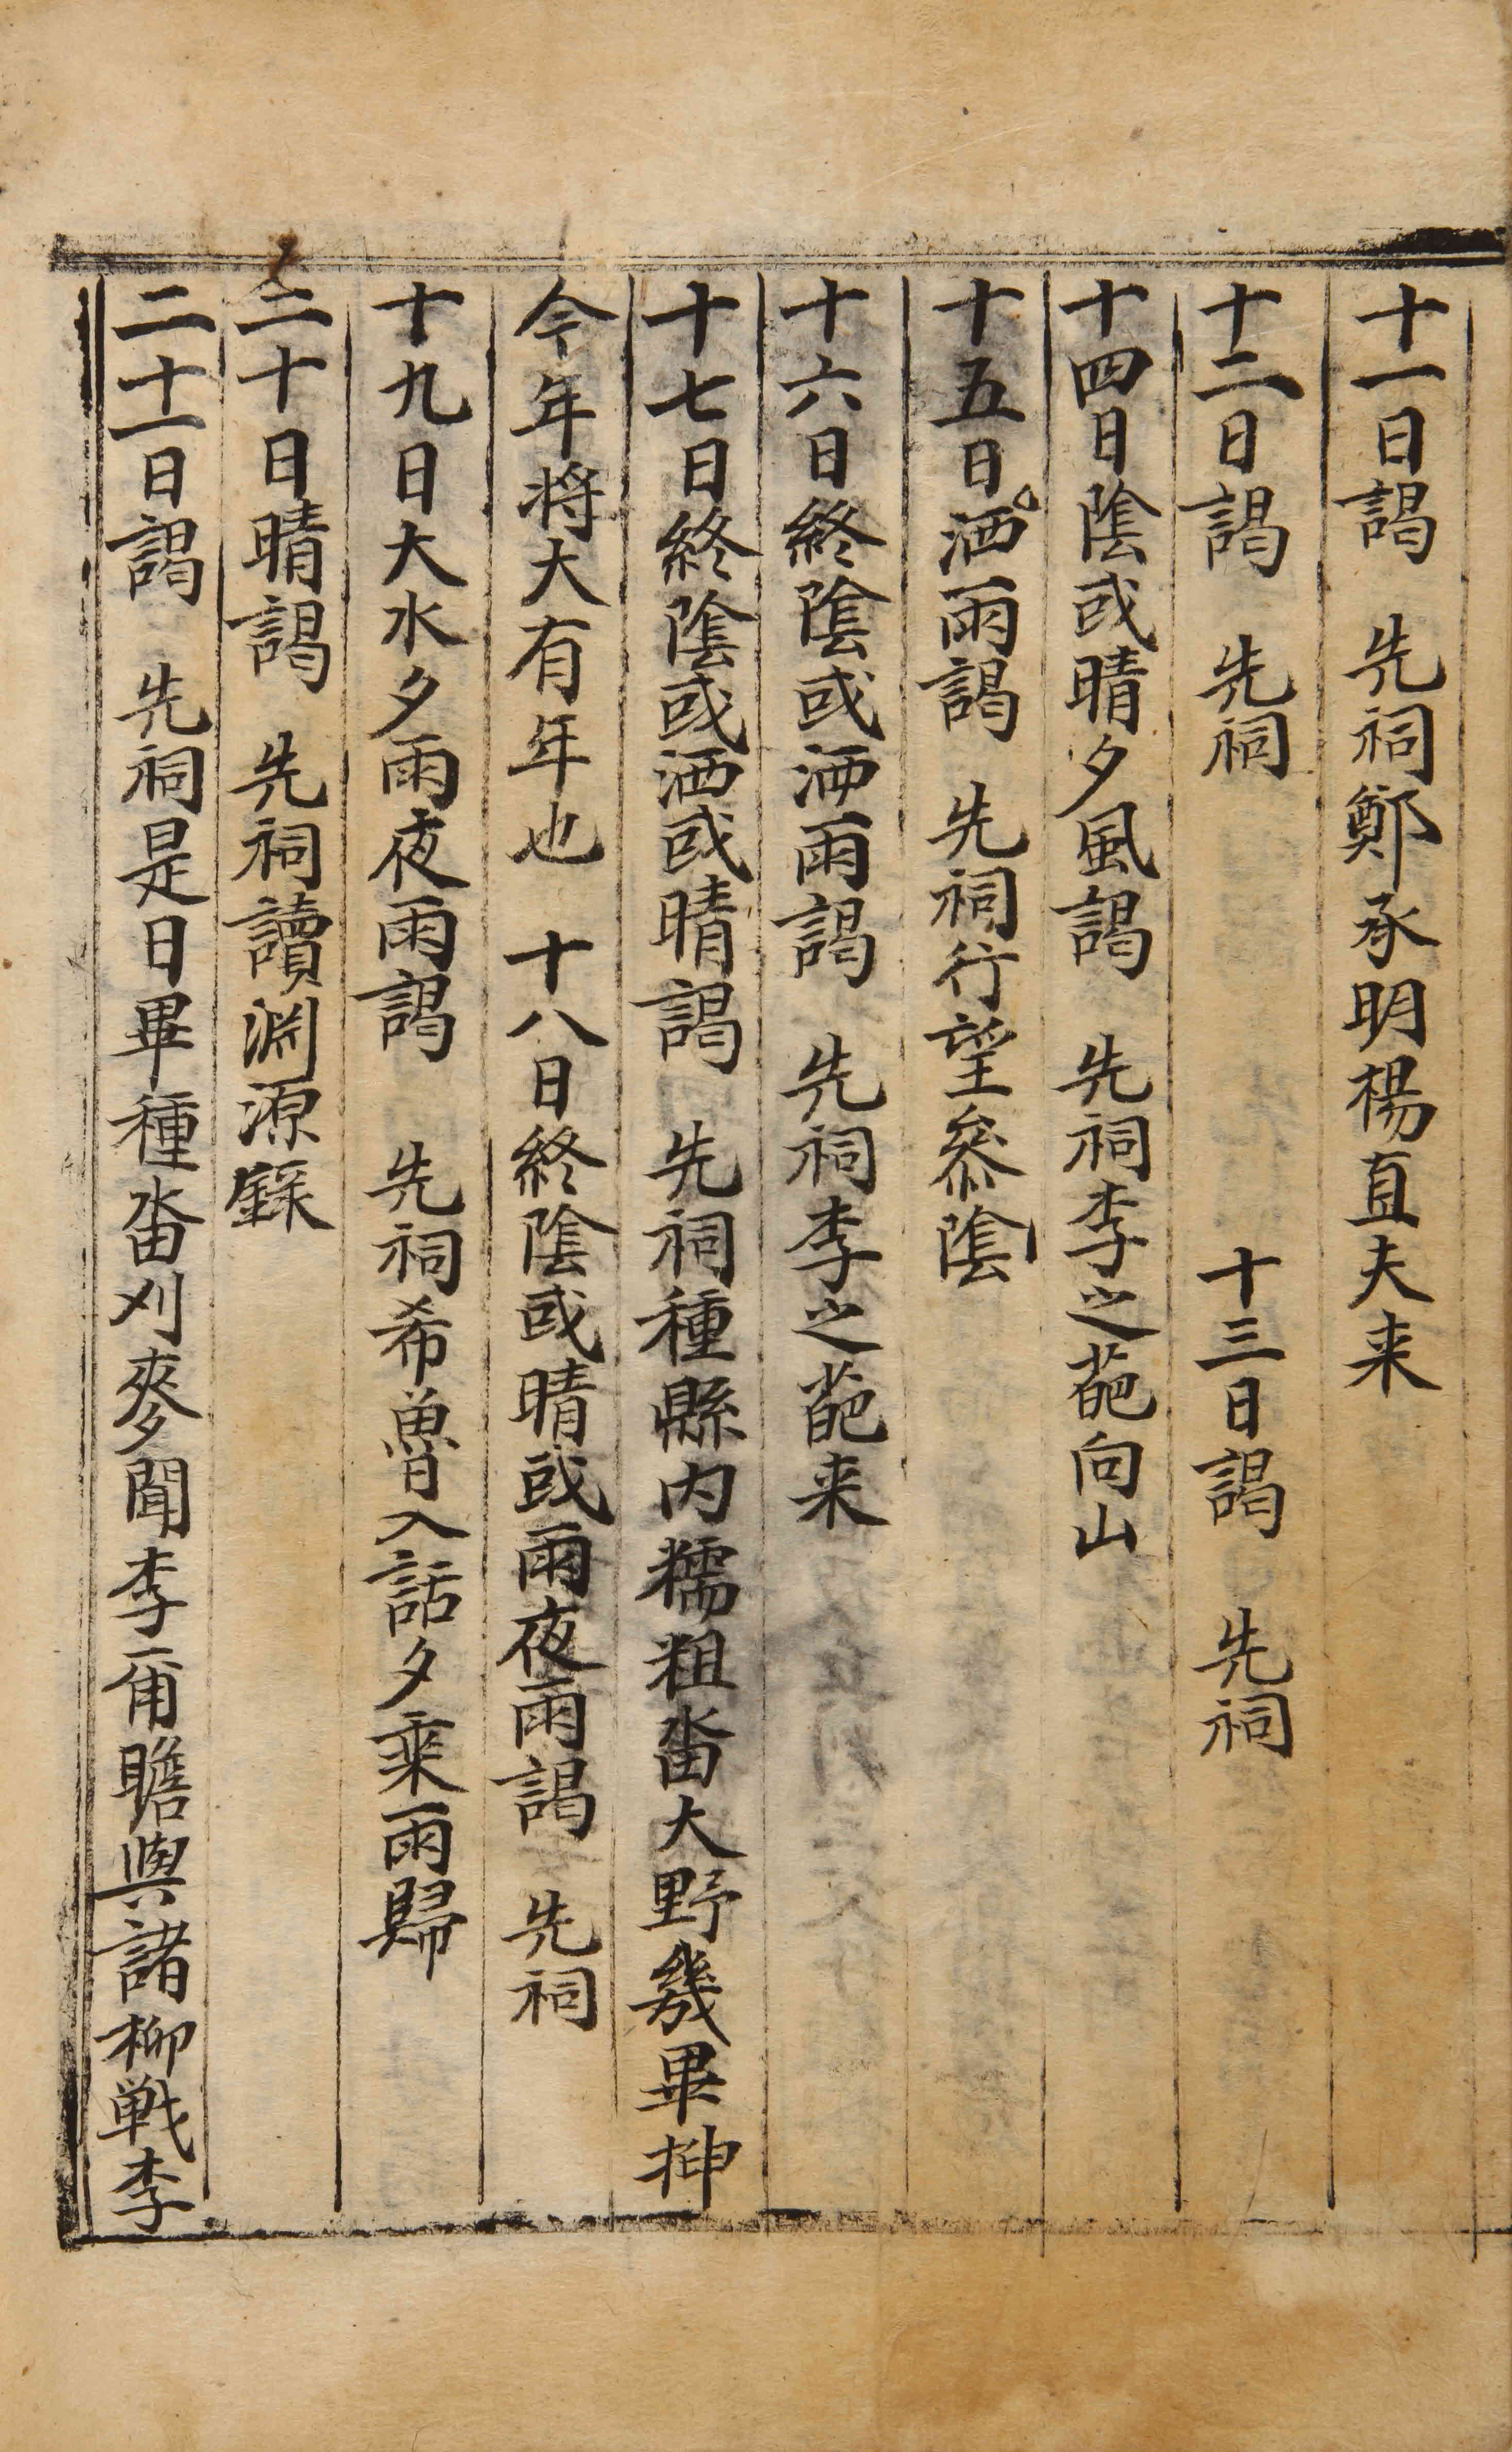 十一日謁　先祠鄭承明楊直夫来
十二日謁　先祠　十三日謁　先祠
十四日陰或晴夕風謁　先祠李之葩向山
十五日洒雨謁　先祠行望叅陰
十六日終陰或洒雨謁　先祠李之葩来
十七日終陰或洒或晴謁　先祠種縣内糯租畓大野幾畢抻
今年将大有年也　十八日終陰或晴或雨夜雨謁　先祠
十九日大水夕雨夜雨謁　先祠希魯入話夕乗雨歸
二十日晴謁　先祠讀淵源錄
二十一日謁　先祠是日畢種畓刈麥聞李甯瞻與諸柳戦李